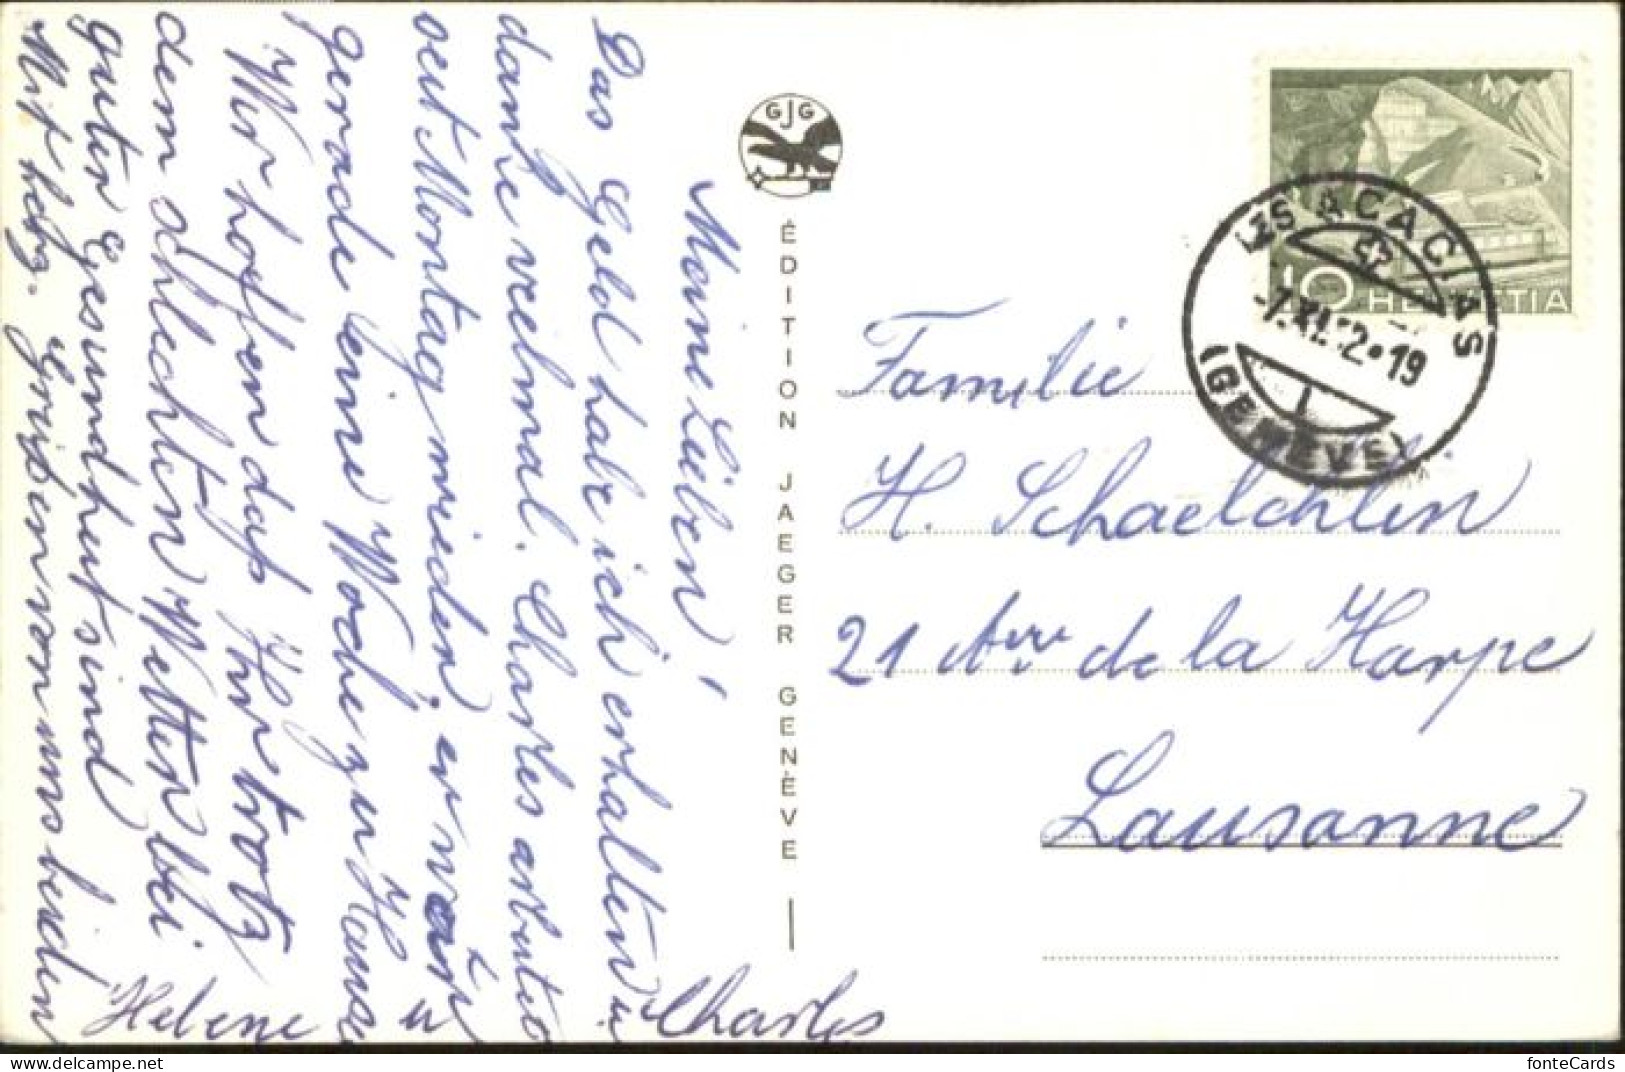 Meine Lieben!
Das Geld habe ich erhalten u.
danke veilmal. Charles arbeitet
seit Montag wieder, er war
gerade eine Woche zu Hause
Wir hoffen daß Ihr trotz
dem schlechten Wetter bei
guter Gesundheit sind
Mit herz. Grüßen von uns beiden
Helene u Charles
GJG
ÉDITION JAEGER GENÈVE
10 HELVETIA
LES ACACIAS
-7.XI.52.19
(GENÈVE)
Familie
H. Schaelchlin
21 Ave de la Harpe
Lausanne
fonteCards